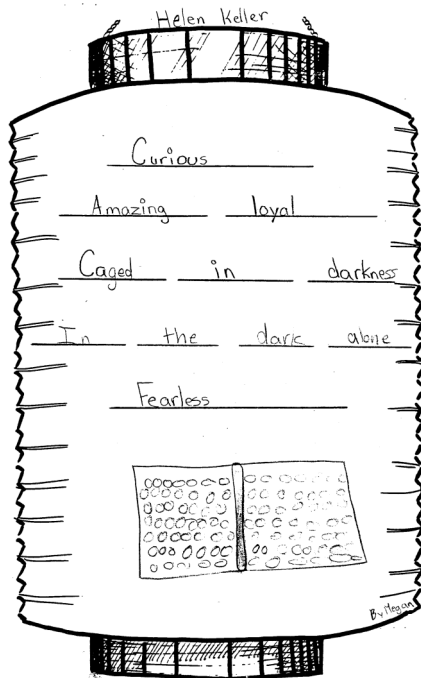 Helen Keller
Curious
Amazing loyal
Caged in darkness
In the dark alone
Fearless
By Megan